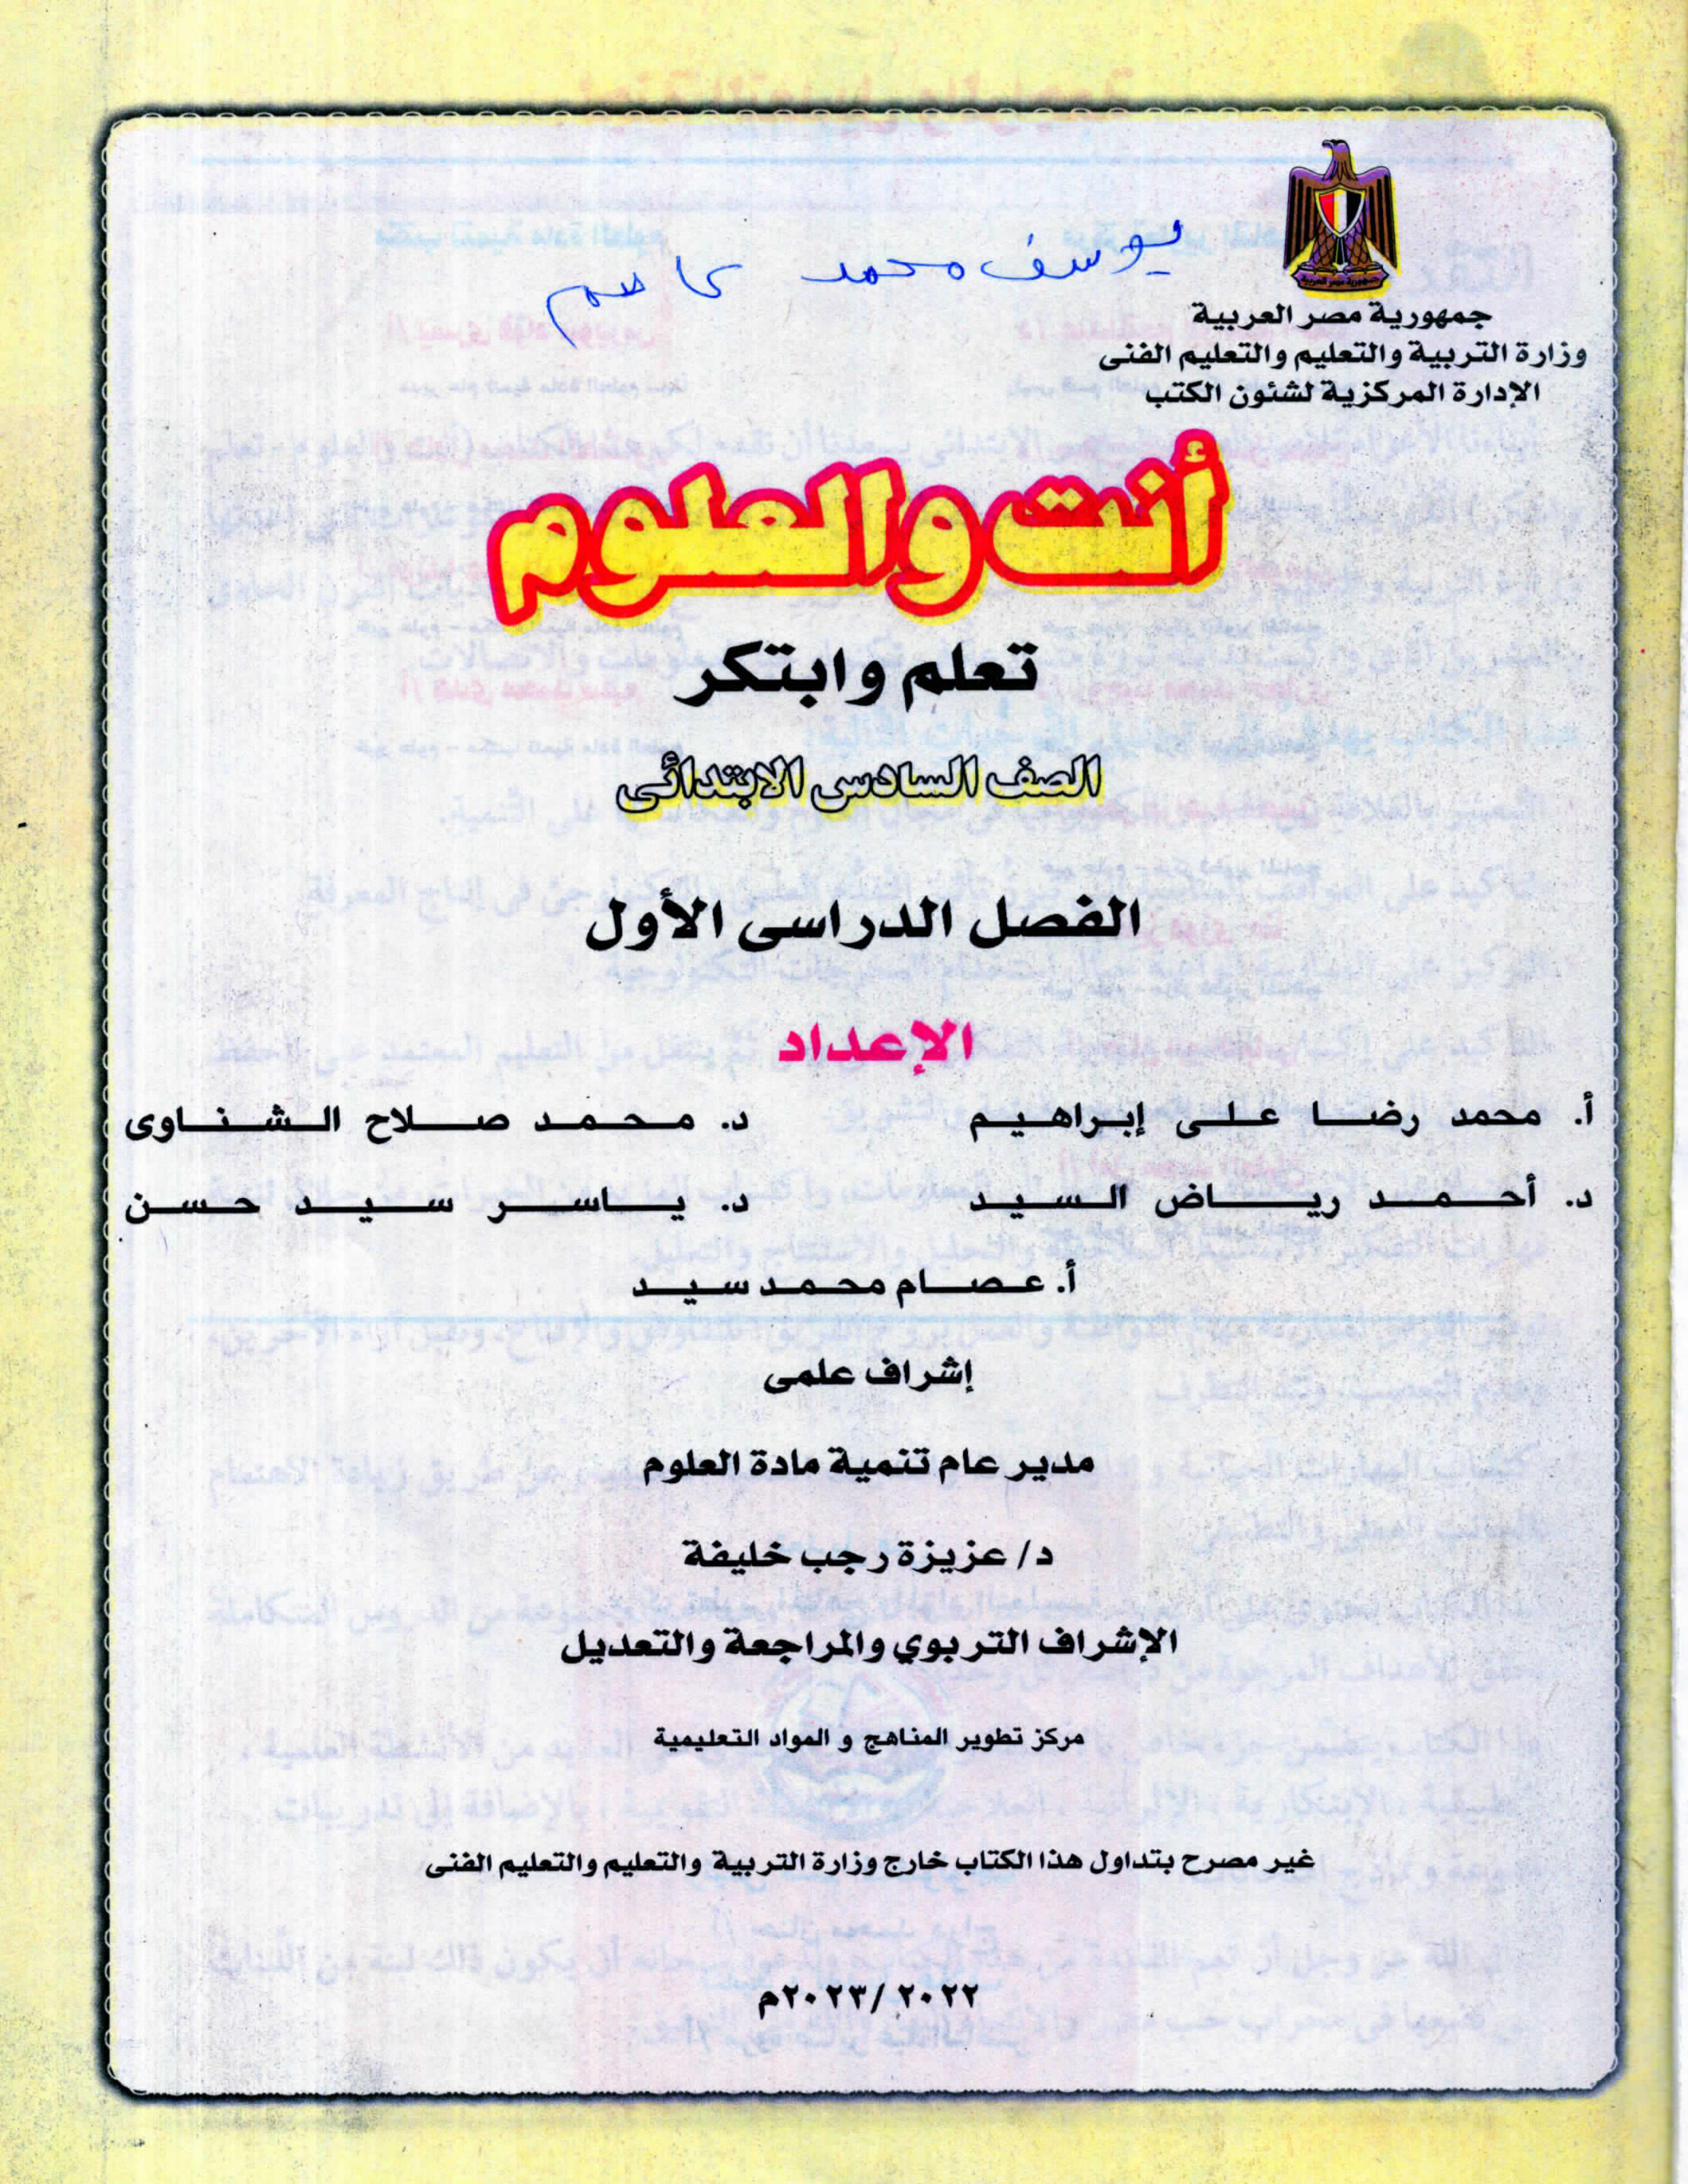 يوسف محمد عاصم
جمهورية مصر العربية
وزارة التربية والتعليم والتعليم الفنى
الإدارة المركزية لشئون الكتب
أنت والعلوم
تعلم وابتكر
الصف السادس الابتدائى
الفصل الدراسى الأول
الإعداد
أ. محمد رضا على إبراهيم د. محمد صلاح الشناوى
د. أحمد رياض السيد د. ياسر سيد حسن
أ. عصام محمد سيد
إشراف علمى
مدير عام تنمية مادة العلوم
د/ عزيزة رجب خليفة
الإشراف التربوي والمراجعة والتعديل
مركز تطوير المناهج و المواد التعليمية
غير مصرح بتداول هذا الكتاب خارج وزارة التربية والتعليم والتعليم الفنى
٢٠٢٢ /٢٠٢٣م